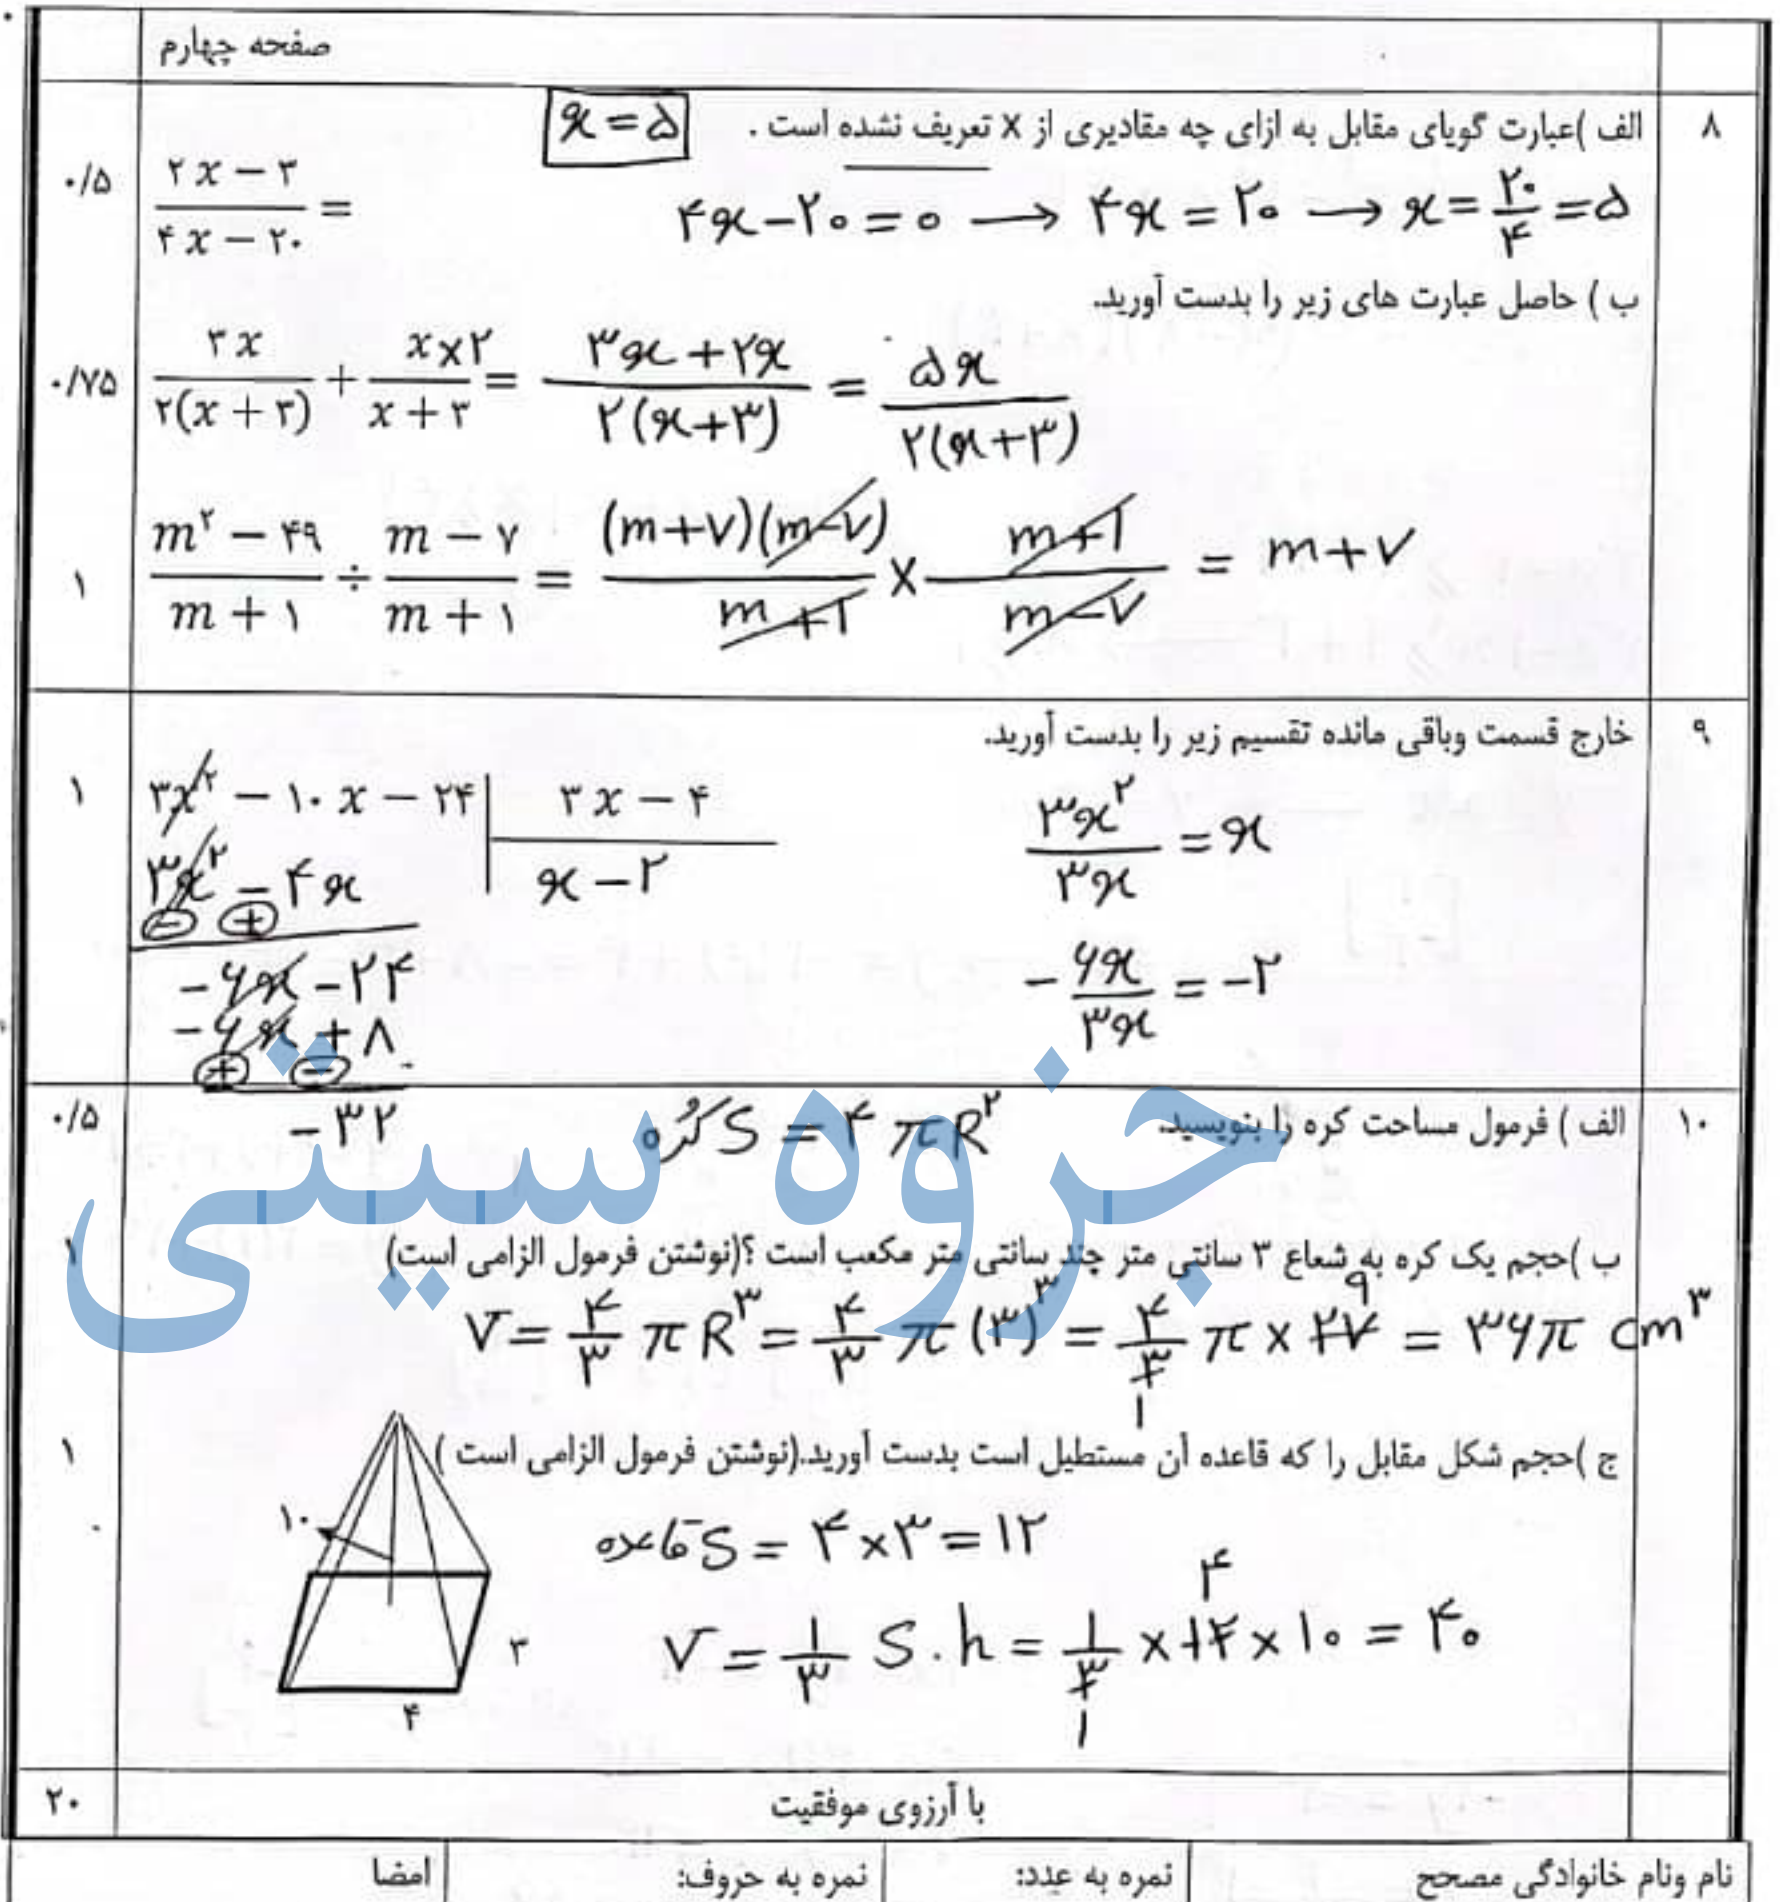 صفحه چهارم
۸ الف )عبارت گویای مقابل به ازای چه مقادیری از x تعریف نشده است . x = ۵
۰/۵ (۲x − ۳)/(۴x − ۲۰) = ۴x − ۲۰ = ۰ → ۴x = ۲۰ → x = ۲۰/۴ = ۵
ب ) حاصل عبارت های زیر را بدست آورید.
۰/۷۵ ۳x/(۲(x + ۳)) + x×۲/(x + ۳) = (۳x + ۲x)/(۲(x+۳)) = ۵x/(۲(x+۳))
۱ (m² − ۴۹)/(m + ۱) ÷ (m − ۷)/(m + ۱) = (m+۷)(m−۷)/(m+۱) × (m+۱)/(m−۷) = m+۷
۹ خارج قسمت وباقی مانده تقسیم زیر را بدست آورید.
۱ ۳x² − ۱۰x − ۲۴ | ۳x − ۴ ۳x²/۳x = x
۳x² − ۴x x − ۲
− +
−۶x − ۲۴ −۶x/۳x = −۲
−۶x + ۸
+ −
−۳۲
۱۰ الف ) فرمول مساحت کره را بنویسید. S کُره = ۴πR² ۰/۵
جزوه سیتی
ب )حجم یک کره به شعاع ۳ سانتی متر چند سانتی متر مکعب است ؟(نوشتن فرمول الزامی است) ۱
V = ۴/۳ πR³ = ۴/۳ π(۳)³ = ۴/۳ π × ۲۷ = ۳۶π cm³
۹
۱
ج )حجم شکل مقابل را که قاعده آن مستطیل است بدست آورید.(نوشتن فرمول الزامی است ) ۱
۱۰ S قاعده = ۴×۳ = ۱۲
۴
۳ V = ۱/۳ S.h = ۱/۳ ×۱۲×۱۰ = ۴۰
۱
۴
با آرزوی موفقیت ۲۰
نام ونام خانوادگی مصحح نمره به عدد: نمره به حروف: امضا